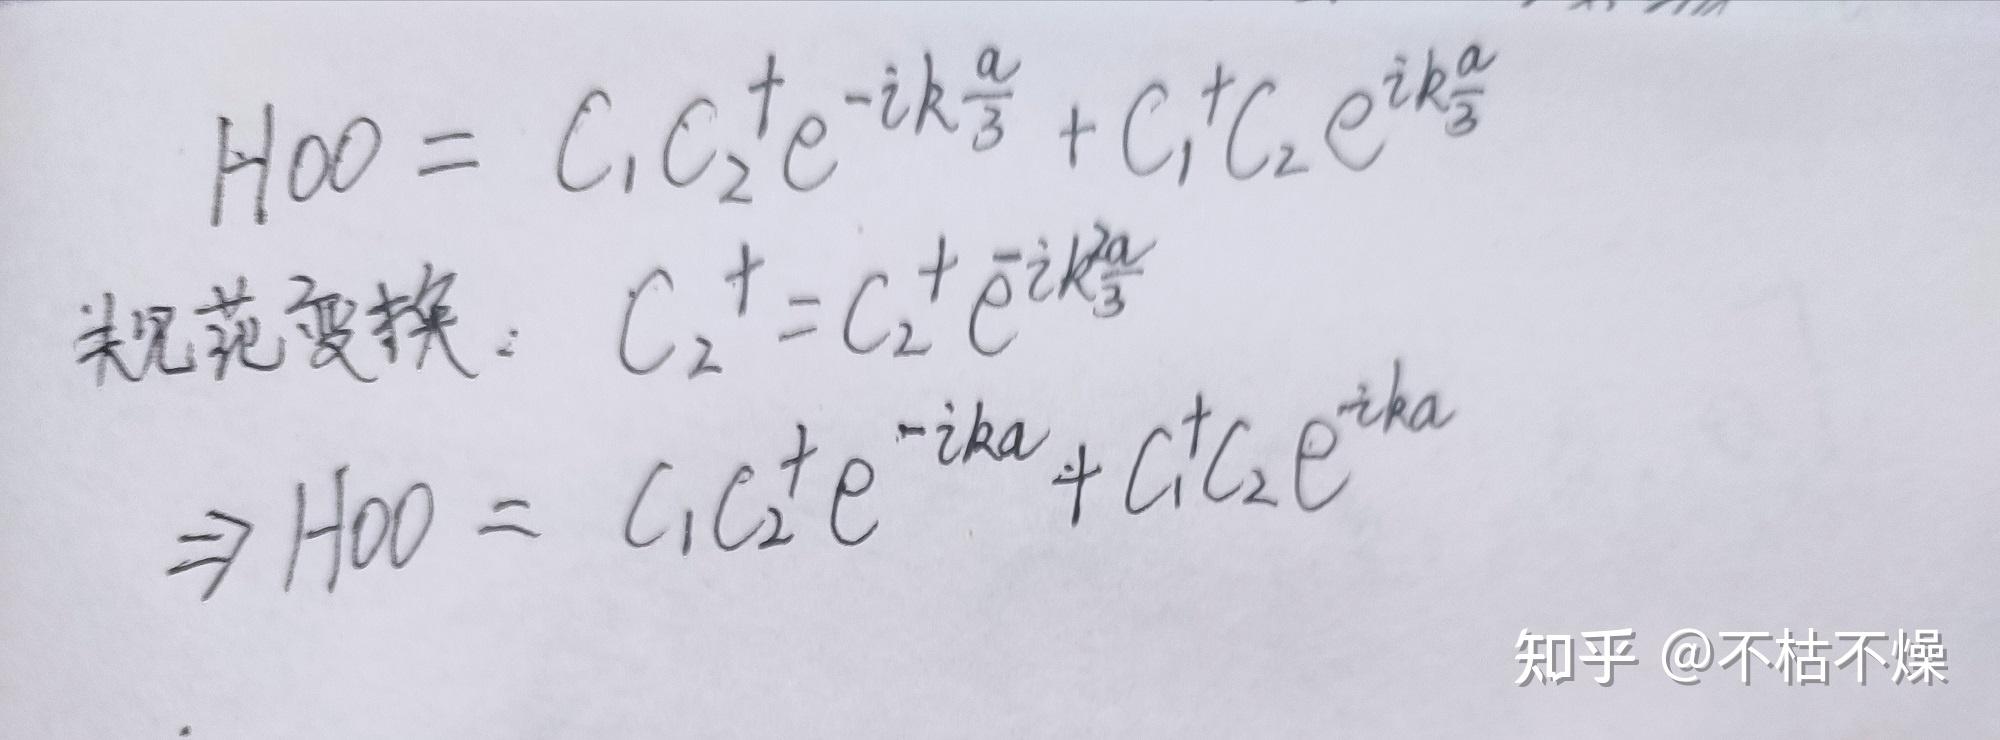 H00 = C₁C₂†e^{-ik\frac{a}{3}} + C₁†C₂e^{ik\frac{a}{3}}
规范变换: C₂† = C₂†e^{-ik\frac{2a}{3}}
⇒ H00 = C₁C₂†e^{-ika} + C₁†C₂e^{-ika}
知乎 @不枯不燥